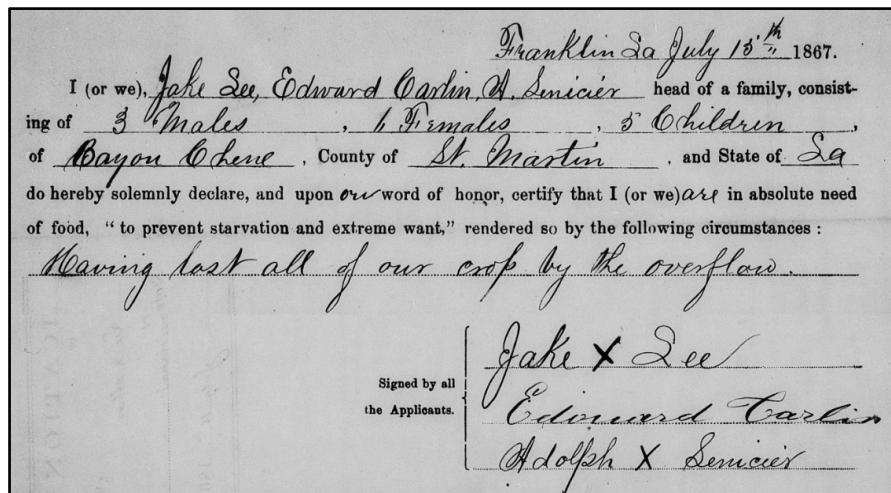 Franklin La July 15th 1867.
I (or we), Jake Lee, Edward Carlin, A. Senicier head of a family, consist-
ing of 3 Males, 6 Females, 5 Children,
of Bayou Chene, County of St. Martin, and State of La
do hereby solemnly declare, and upon our word of honor, certify that I (or we) are in absolute need
of food, "to prevent starvation and extreme want," rendered so by the following circumstances:
Having lost all of our crop by the overflow.
Jake X Lee
Signed by all
the Applicants.
Edouward Carlin
Adolph X Senicier